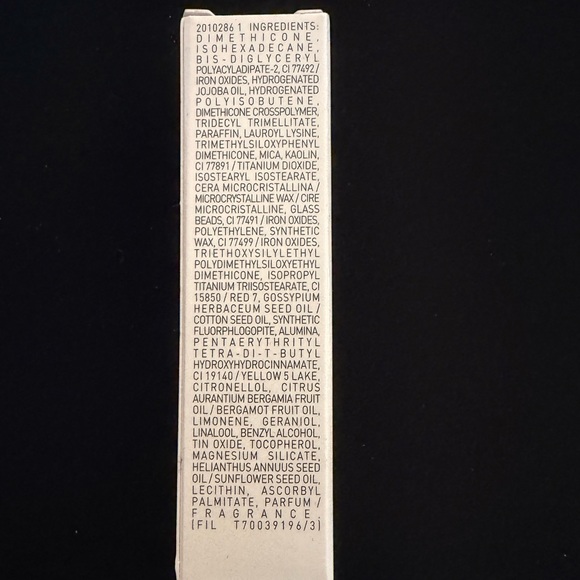 2010286 1 INGREDIENTS:
DIMETHICONE,
ISOHEXADECANE,
BIS-DIGLYCERYL
POLYACYLADIPATE-2, CI 77492 /
IRON OXIDES, HYDROGENATED
JOJOBA OIL, HYDROGENATED
POLYISOBUTENE,
DIMETHICONE CROSSPOLYMER,
TRIDECYL TRIMELLITATE,
PARAFFIN, LAUROYL LYSINE,
TRIMETHYLSILOXYPHENYL
DIMETHICONE, MICA, KAOLIN,
CI 77891 / TITANIUM DIOXIDE,
ISOSTEARYL ISOSTEARATE,
CERA MICROCRISTALLINA /
MICROCRYSTALLINE WAX / CIRE
MICROCRISTALLINE, GLASS
BEADS, CI 77491 / IRON OXIDES,
POLYETHYLENE, SYNTHETIC
WAX, CI 77499 / IRON OXIDES,
TRIETHOXYSILYLETHYL
POLYDIMETHYLSILOXYETHYL
DIMETHICONE, ISOPROPYL
TITANIUM TRIISOSTEARATE, CI
15850 / RED 7, GOSSYPIUM
HERBACEUM SEED OIL /
COTTON SEED OIL, SYNTHETIC
FLUORPHLOGOPITE, ALUMINA,
PENTAERYTHRITYL
TETRA-DI-T-BUTYL
HYDROXYHYDROCINNAMATE,
CI 19140 / YELLOW 5 LAKE,
CITRONELLOL, CITRUS
AURANTIUM BERGAMIA FRUIT
OIL / BERGAMOT FRUIT OIL,
LIMONENE, GERANIOL,
LINALOOL, BENZYL ALCOHOL,
TIN OXIDE, TOCOPHEROL,
MAGNESIUM SILICATE,
HELIANTHUS ANNUUS SEED
OIL / SUNFLOWER SEED OIL,
LECITHIN, ASCORBYL
PALMITATE, PARFUM /
FRAGRANCE.
(FIL T70039196/3)